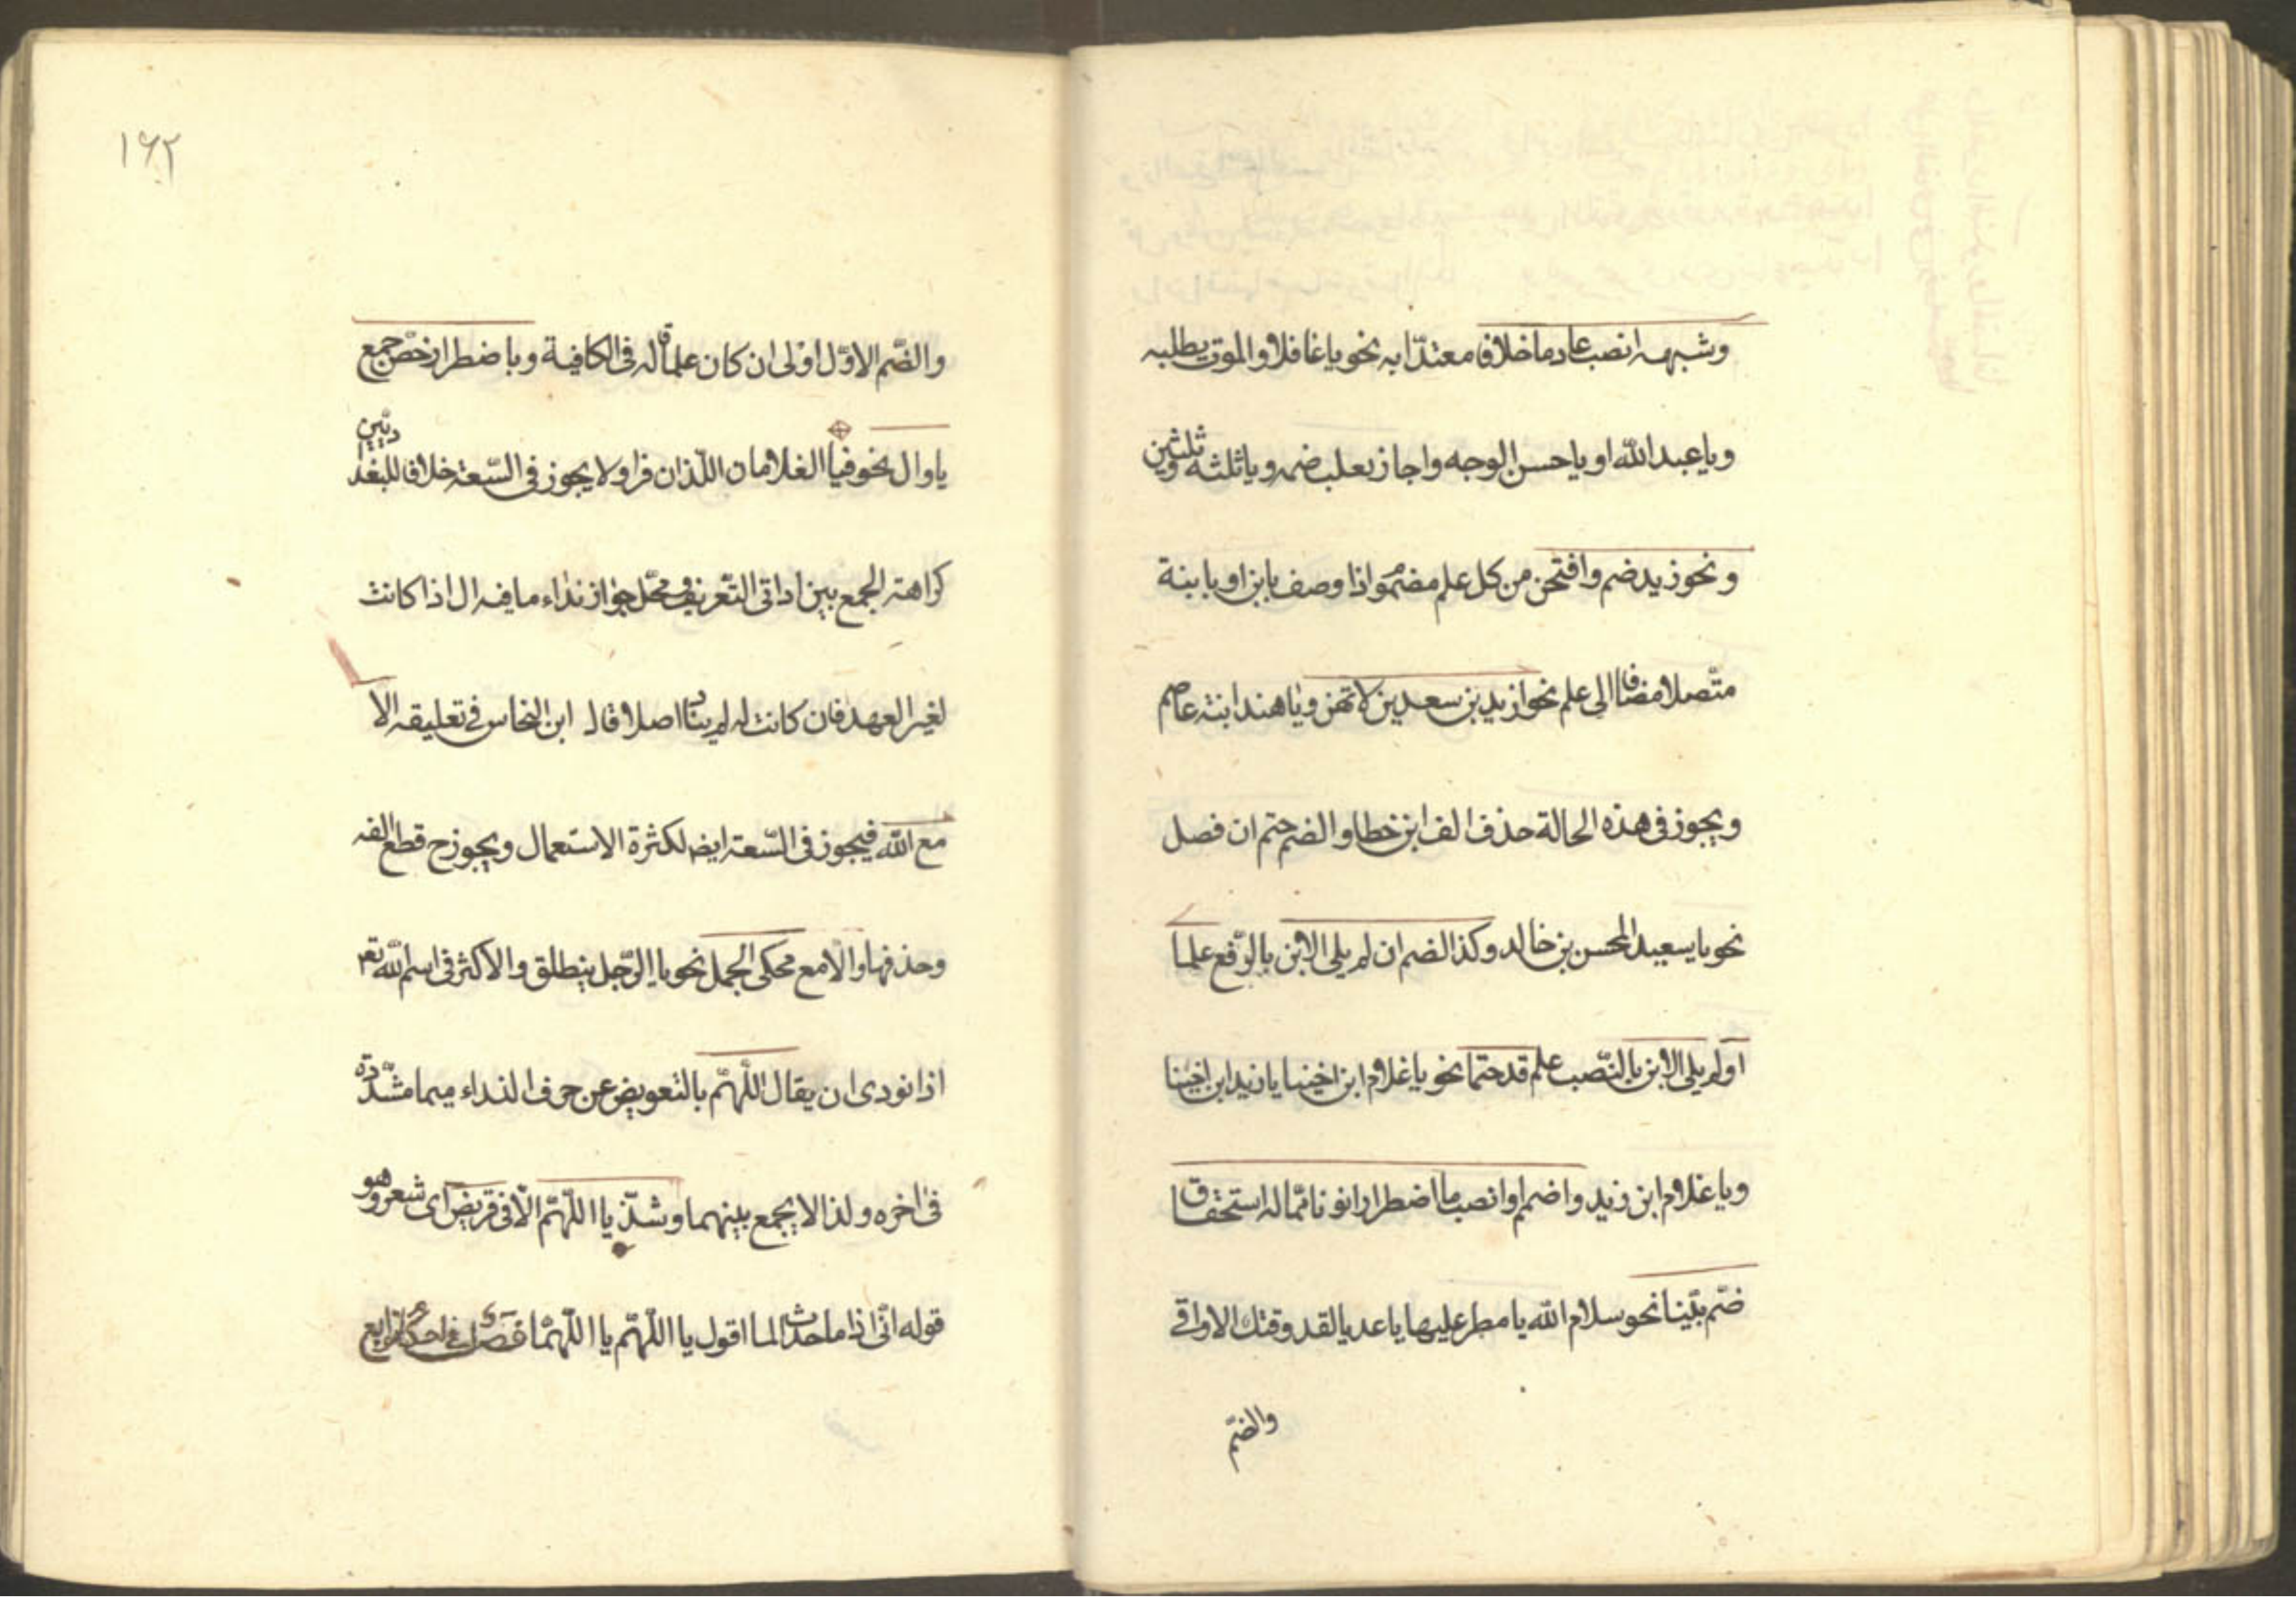 وشبهه انصب عادما خلافا معتدّا به نحو يا غافلا والموت يطلبه
ويا عبد الله او يا حسن الوجه واجاز ثعلب ضمه ويا ثلثه وثلثين
ونحو زيد ضم وافتحن من كل علم مضموم اذا وصف بابن او بابنة
متّصلا مضافا الى علم نحو ازيد بن سعيد بن لا تهن ويا هند ابنة عاصم
ويجوز فى هذه الحالة حذف الف ابن خطا والضم حتم ان فصل
نحو يا سعيد المحسن بن خالد وكذا الضم ان لم يلى الابن بالرّفع علما
او لم يلى الابن بالنّصب علم قد حتما نحو يا غلام ابن اخينا يا زيد ابن اخينا
ويا غلام ابن زيد واضمم او انصب ما اضطرارا نونا ممّا له استحقاق
ضم بيّنا نحو سلام الله يا مطر عليها يا عديا لقد وقتك الاواقى
والضّم
١٦٢
والضّم الاوّل اولى ان كان علما قاله فى الكافية وباضطرار خصّ جمع
يا وال نحو فيا الغلامان اللّذان فرا ولا يجوز فى السّعة خلافا للبغداديّين
كراهة الجمع بين اداتى التّعريف ومحّل جواز نداء ما فيه ال اذا كانت
لغير العهد فان كانت له لم يناد اصلا قال ابن النحاس فى تعليقه الّا
مع اللّه فيجوز فى السّعة ايض لكثرة الاستعمال ويجوز ح قطع الفه
وحذفها والّا مع محكى الجمل نحو يا الرّجل ينطلق والاكثر فى اسم اللّه تع
اذا نودى ان يقال اللّهمّ بالتعويض عن حرف النداء ميما مشدّدة
فى اخره ولذا لا يجمع بينهما وشذّ يا اللّهمّ الّا فى قريض اى شعر وهو
قوله انّى اذا ما حدث الما اقول يا اللّهمّ يا اللّهمّا فصل فى احكام توابع